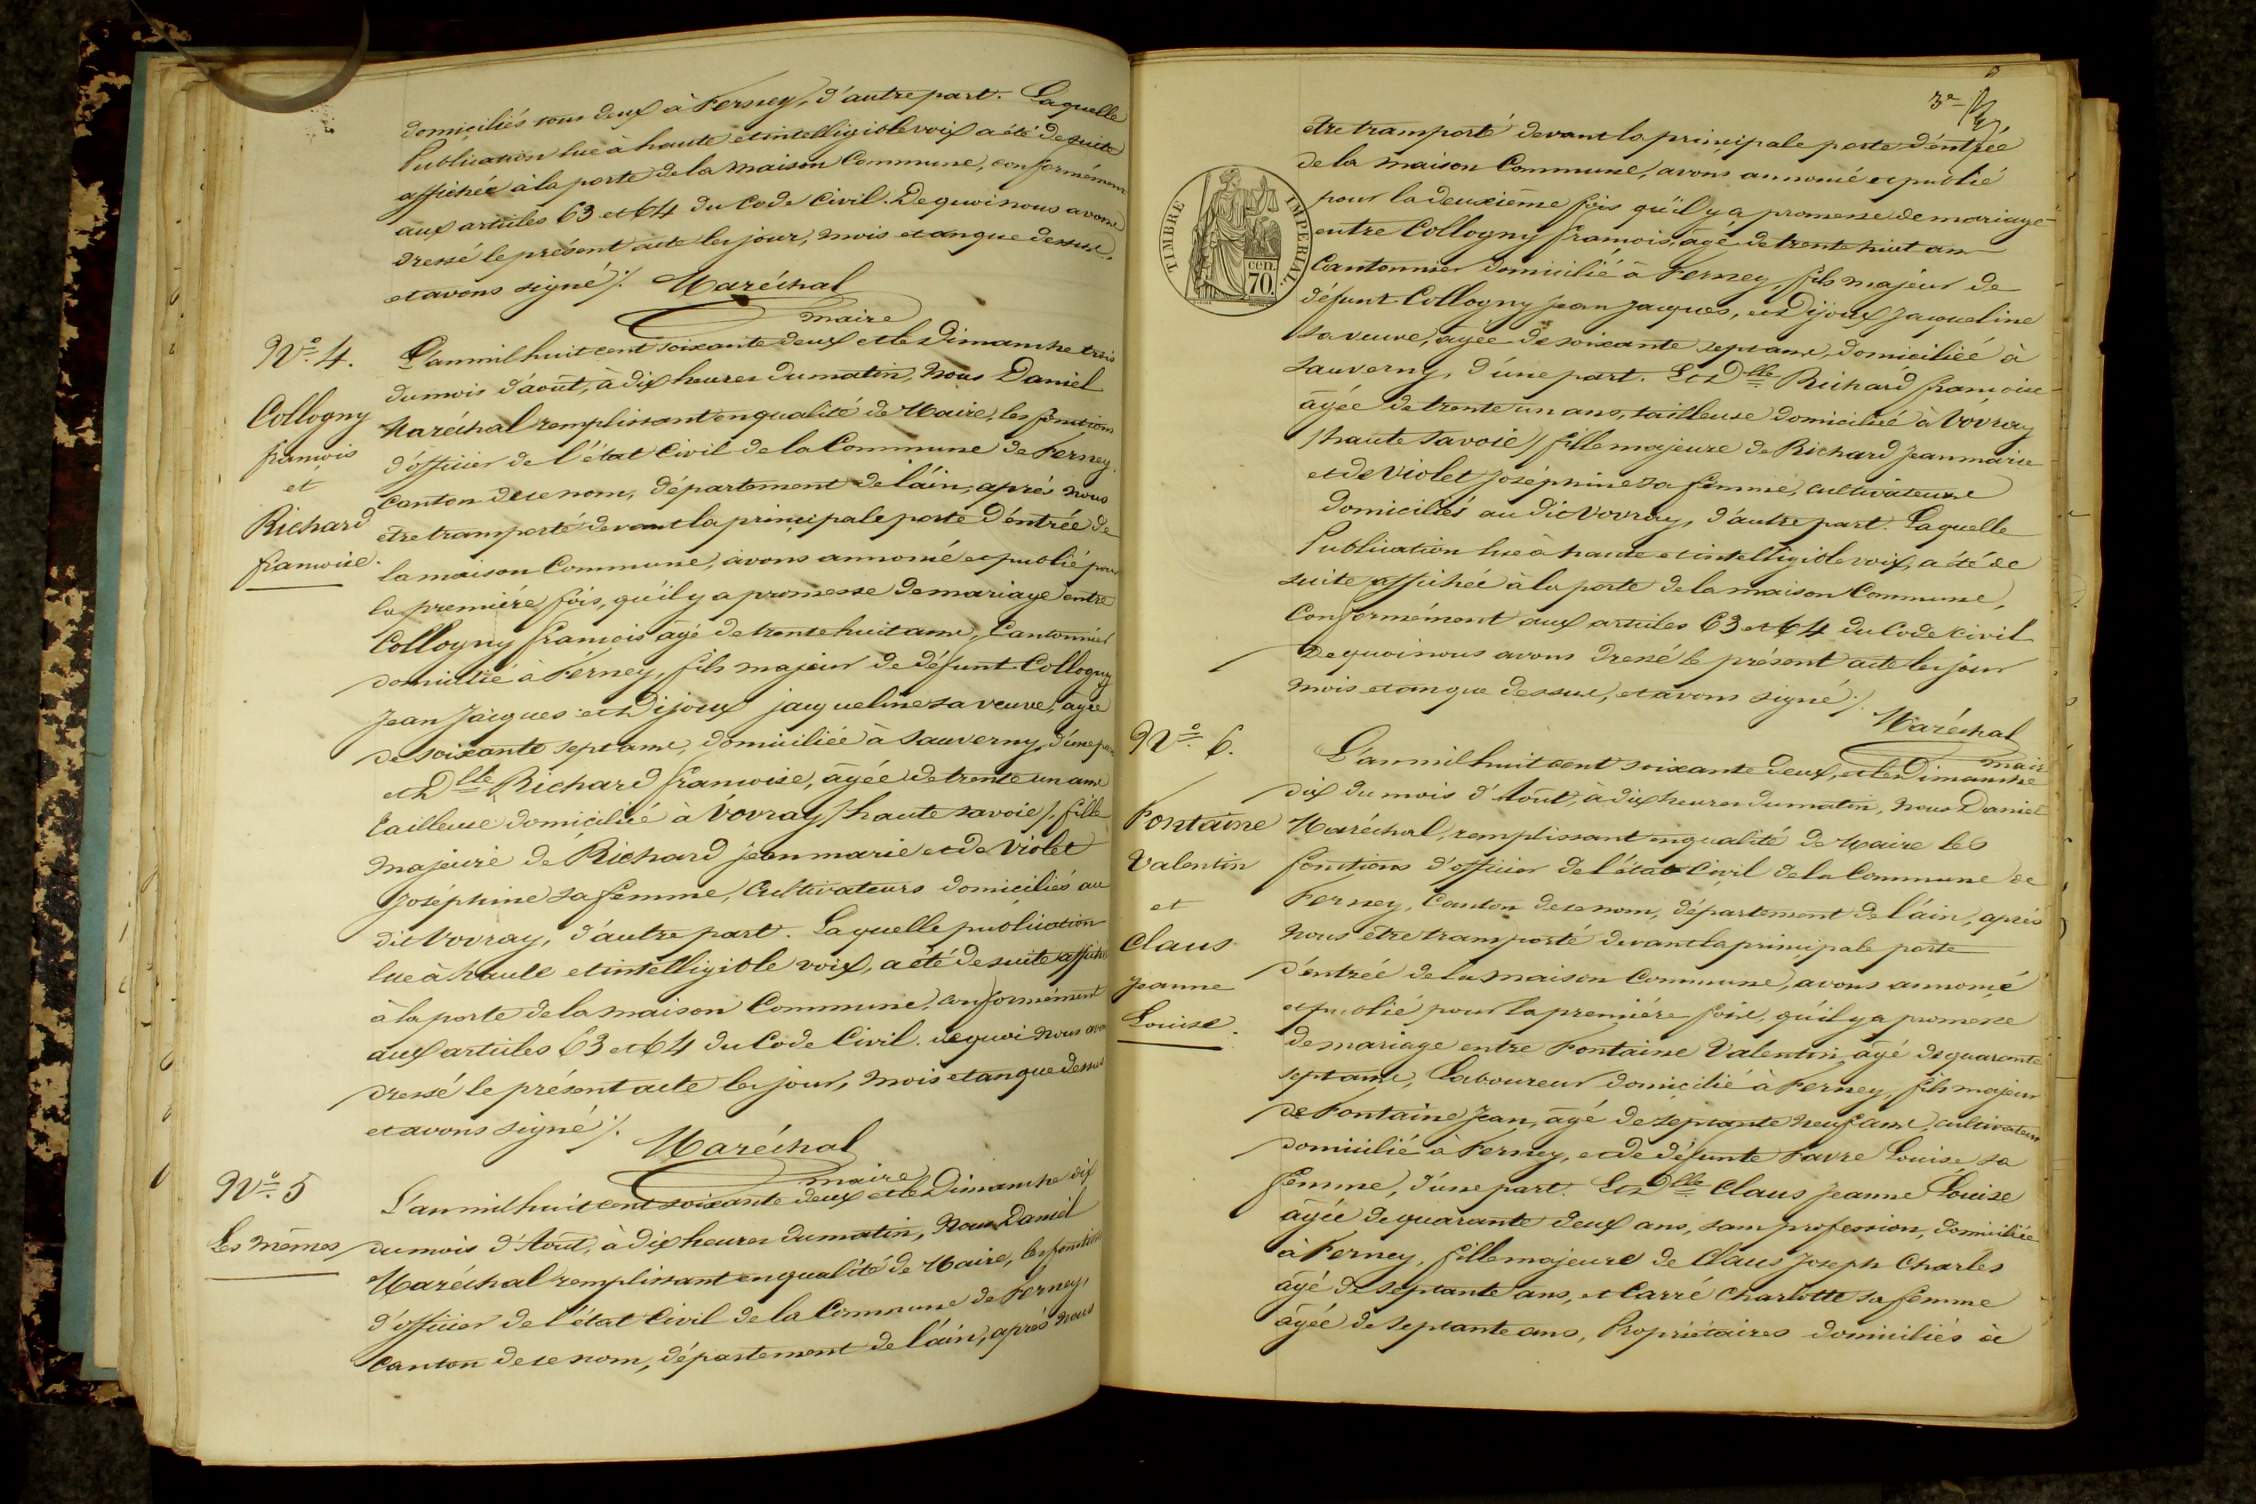 domiciliés tous deux à Ferney, d'autre part. Laquelle
Publication lue à haute et intelligible voix a été de suite
affichée à la porte de la maison Commune, conformément
aux articles 63 et 64 du Code Civil. De quoi nous avons
dressé le présent acte les jour, mois et an que dessus,
et avons signé /. Maréchal
maire
N° 4.
Collogny
françois
et
Richard
francoise.
L'an mil huit cent soixante deux et le Dimanche trois
du mois d'août, à dix heures du matin, Nous Daniel
Maréchal remplissant en qualité de Maire, les fonctions
d'officier de l'état Civil de la Commune de Ferney,
Canton de ce nom, département de l'áin, aprés nous
être transporté devant la principale porte d'éntrée de
la maison Commune, avons annoncé et publié pour
la premiére fois, qu'il y a promesse de mariage entre
Collogny françois âgé de trente huit ans, Cantonnier
domicilié à Ferney, fils majeur de défunt Collogny
Jean Jacques et Dijoux jacqueline sa veuve, âgée
de soixante sept ans, domiciliée à Sauverny, d'une part
et Dlle Richard francoise, âgée de trente un ans
tailleuse domiciliée à Vovray /haute savoie/, fille
majeure de Richard jean marie et de Violet
Joséphine sa femme, Cultivateurs domiciliés au
dit Vovray, d'autre part. Laquelle publication
lue à haute et intelligible voix, a été de suite affichée
à la porte de la maison Commune, conformément
aux articles 63 et 64 du Code Civil. de quoi nous avons
dressé le présent acte les jour, mois et an que dessus
et avons signé /. Maréchal
maire
N° 5
Les mêmes
L'an mil huit cent soixante deux et le Dimanche dix
du mois d'Aout, à dix heures du matin, Nous Daniel
Maréchal remplissant en qualité de Maire, les fonctions
d'officier de l'état Civil de la Commune de Ferney,
Canton de ce nom, département de l'áin, aprés nous
3e
TIMBRE IMPERIAL.
CEN. 70.
être transporté devant la principale porte d'éntrée
de la maison Commune, avons annoncé et publié
pour la deuxiéme fois qu'il y a promesse de mariage
entre Collogny françois, âgé de trente huit ans
Cantonnier domicilié à Ferney, fils majeur de
défunt Collogny Jean Jacques, et Dijoux Jacqueline
sa veuve, âgée de soixante sept ans, domiciliée à
Sauverny, d'úne part. Et Dlle Richard francoise
âgée de trente un ans, tailleuse domiciliée à Vovray
/haute Savoie/ fille majeure de Richard Jean marie
et de Violet Joséphine sa femme, cultivateurs
domiciliés au dit Vovray, d'autre part. Laquelle
Publication lue à haute et intelligible voix, a été de
suite affichée à la porte de la maison Commune,
Conformément aux articles 63 et 64 du Code Civil
De quoi nous avons dressé le présent acte les jour
mois et an que dessus, et avons signé /.
Maréchal
maire
N° 6.
Fontaine
Valentin
et
Claus
Jeanne
Louise.
L'an mil huit cent soixante deux, et le Dimanche
dix du mois d'Août, à dix heures du matin, Nous Daniel
Maréchal, remplissant en qualité de Maire les
fonctions d'officier de l'état Civil de la Commune de
Ferney, Canton de ce nom, département de l'áin, aprés
Nous être transporté devant la principale porte
d'entrée de la maison Commune, avons annoncé
et publié pour la premiére fois, qu'il y a promesse
de mariage entre Fontaine Valentin, âgé de quarante
sept ans, Laboureur domicilié à Ferney, fils majeur
de Fontaine Jean, âgé de septante neuf ans, cultivateur
domicilié à Ferney, et de défunte Favre Louise sa
femme, d'úne part. Et Dlle Claus Jeanne Louise
âgée de quarante deux ans, sans profession, domiciliée
à Ferney, fille majeure de Claus Joseph Charles
âgé de septante ans, et Carré Charlotte sa femme
âgée de septante ans, Propriétaires domiciliés à